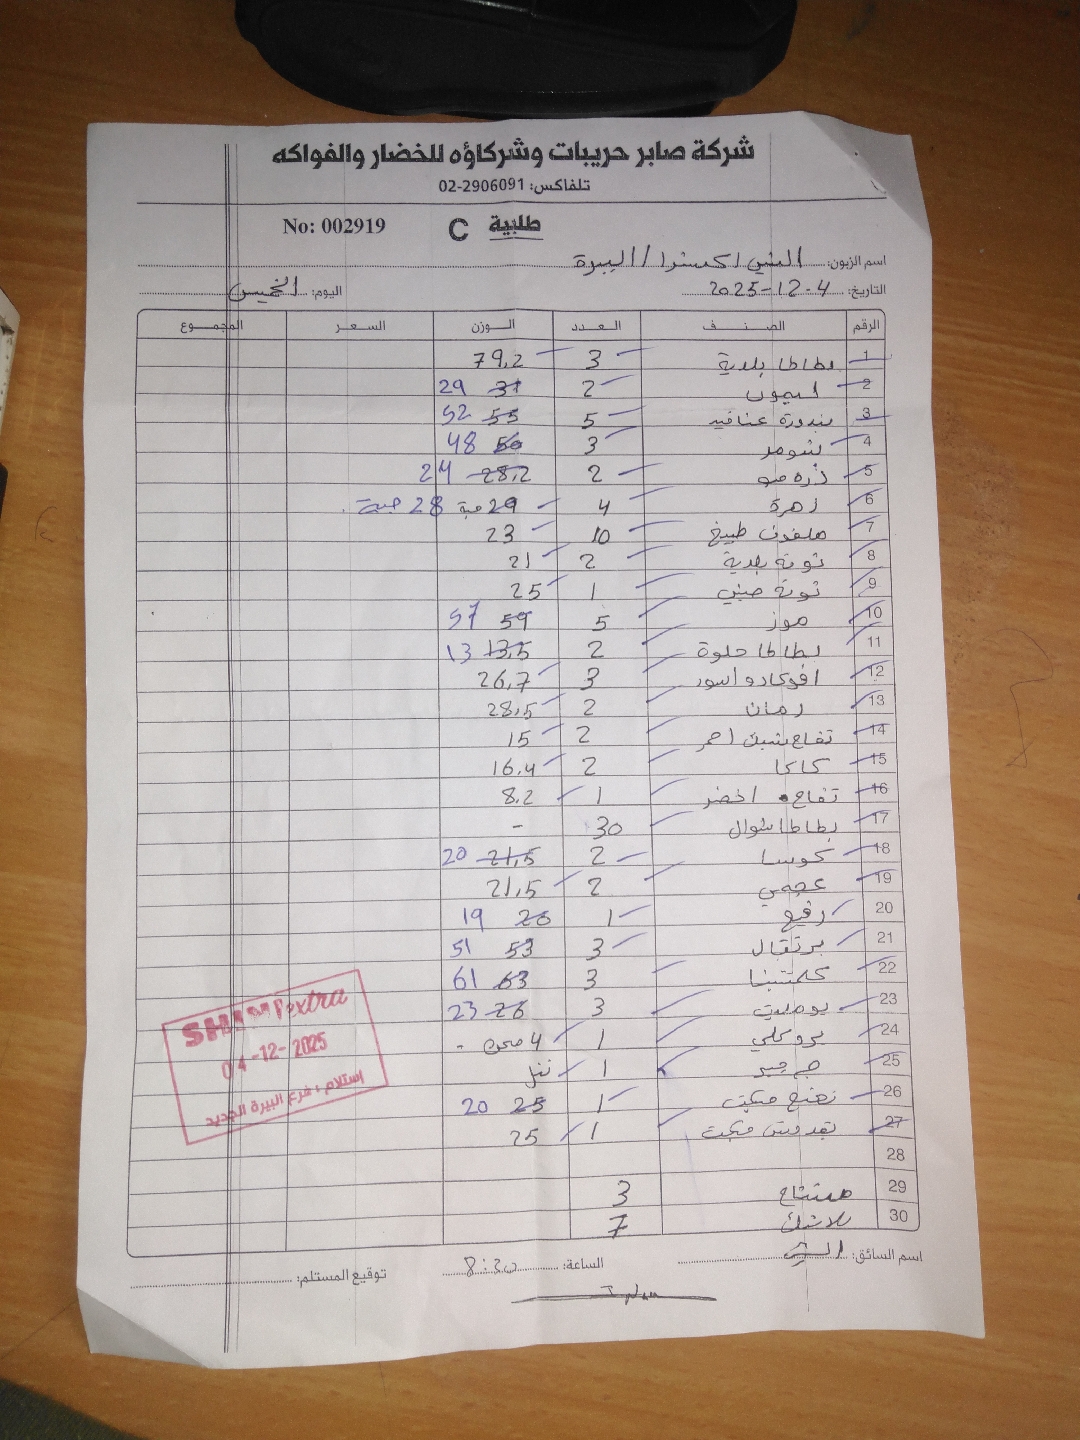 شركة صابر حريبات وشركاؤه للخضار والفواكه
تلفاكس: 02-2906091
طلبية C No: 002919
اسم الزبون: الشني اكسترا / البيرة
التاريخ: 4-12-2025 اليوم: الخميس
الرقم الصنف العدد الوزن السعر المجموع
1 بطاطا بلدية 3 79,2
2 ليمون 2 31 29
3 بندورة عناقيد 5 55 52
4 شومر 3 50 48
5 2 28,2 24
6 زهرة 4 29 حبة 28 حبة
7 ملفوف طبيخ 10 23
8 توتة بلدية 2 21
9 توتة صيني 1 25
10 موز 5 59 57
11 بطاطا حلوة 2 13,5 13
12 افوكادو اسود 3 26,7
13 رمان 2 28,5
14 تفاح سمبل احمر 2 15
15 كاكا 2 16,4
16 تفاح اخضر 1 8,2
17 بطاطا شوال 30 -
18 كوسا 2 21,5 20
19 عجمي 2 21,5
20 رفيع 1 20 19
21 برتقال 3 53 51
22 كلمنتينا 3 63 61
23 بوملي 3 26 23
24 بروكلي 1 4 صحن -
25 جرجير 1
26 نعنع مكبت 1 25 20
27 بقدونس مكبت 1 25
28
29 مشتاح 3
30 بلاستك 7
اسم السائق: الساعة: 8:30 توقيع المستلم:
SHINI extra
04-12-2025
استلام: فرع البيرة الجديد